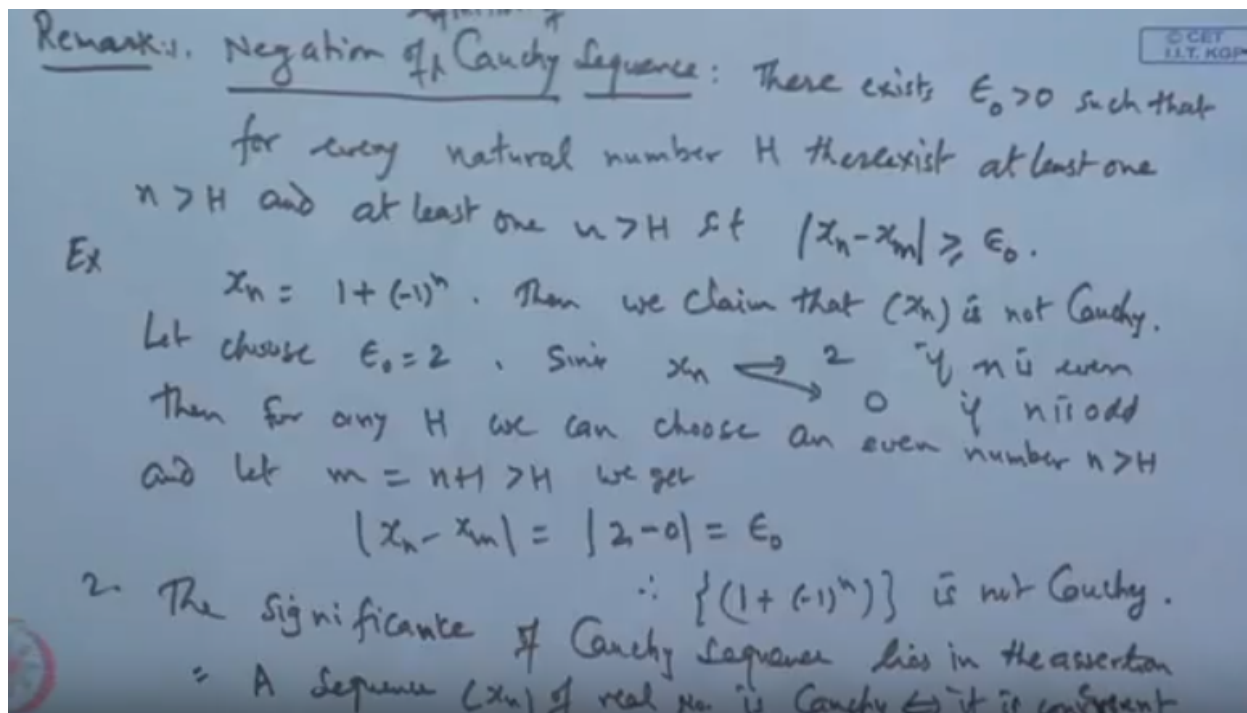 Remarks. Negation of Cauchy Sequence: There exists ε₀ >0 such that
© CET
I.I.T. KGP
for every natural number H there exist at least one
n > H and at least one n > H st |xₙ - xₘ| ≥ ε₀.
Ex
xₙ = 1 + (-1)ⁿ. Then we claim that (xₙ) is not Cauchy.
Let choose ε₀ = 2. Since xₙ → 2 if n is even
→ 0 if n is odd
then for any H we can choose an even number n > H
and let m = n+1 > H we get
|xₙ - xₘ| = |2 - 0| = ε₀
∴ {(1 + (-1)ⁿ)} is not Cauchy.
2. The significance of Cauchy sequence lies in the assertion
= A sequence (xₙ) of real no. is Cauchy ⇔ it is convergent